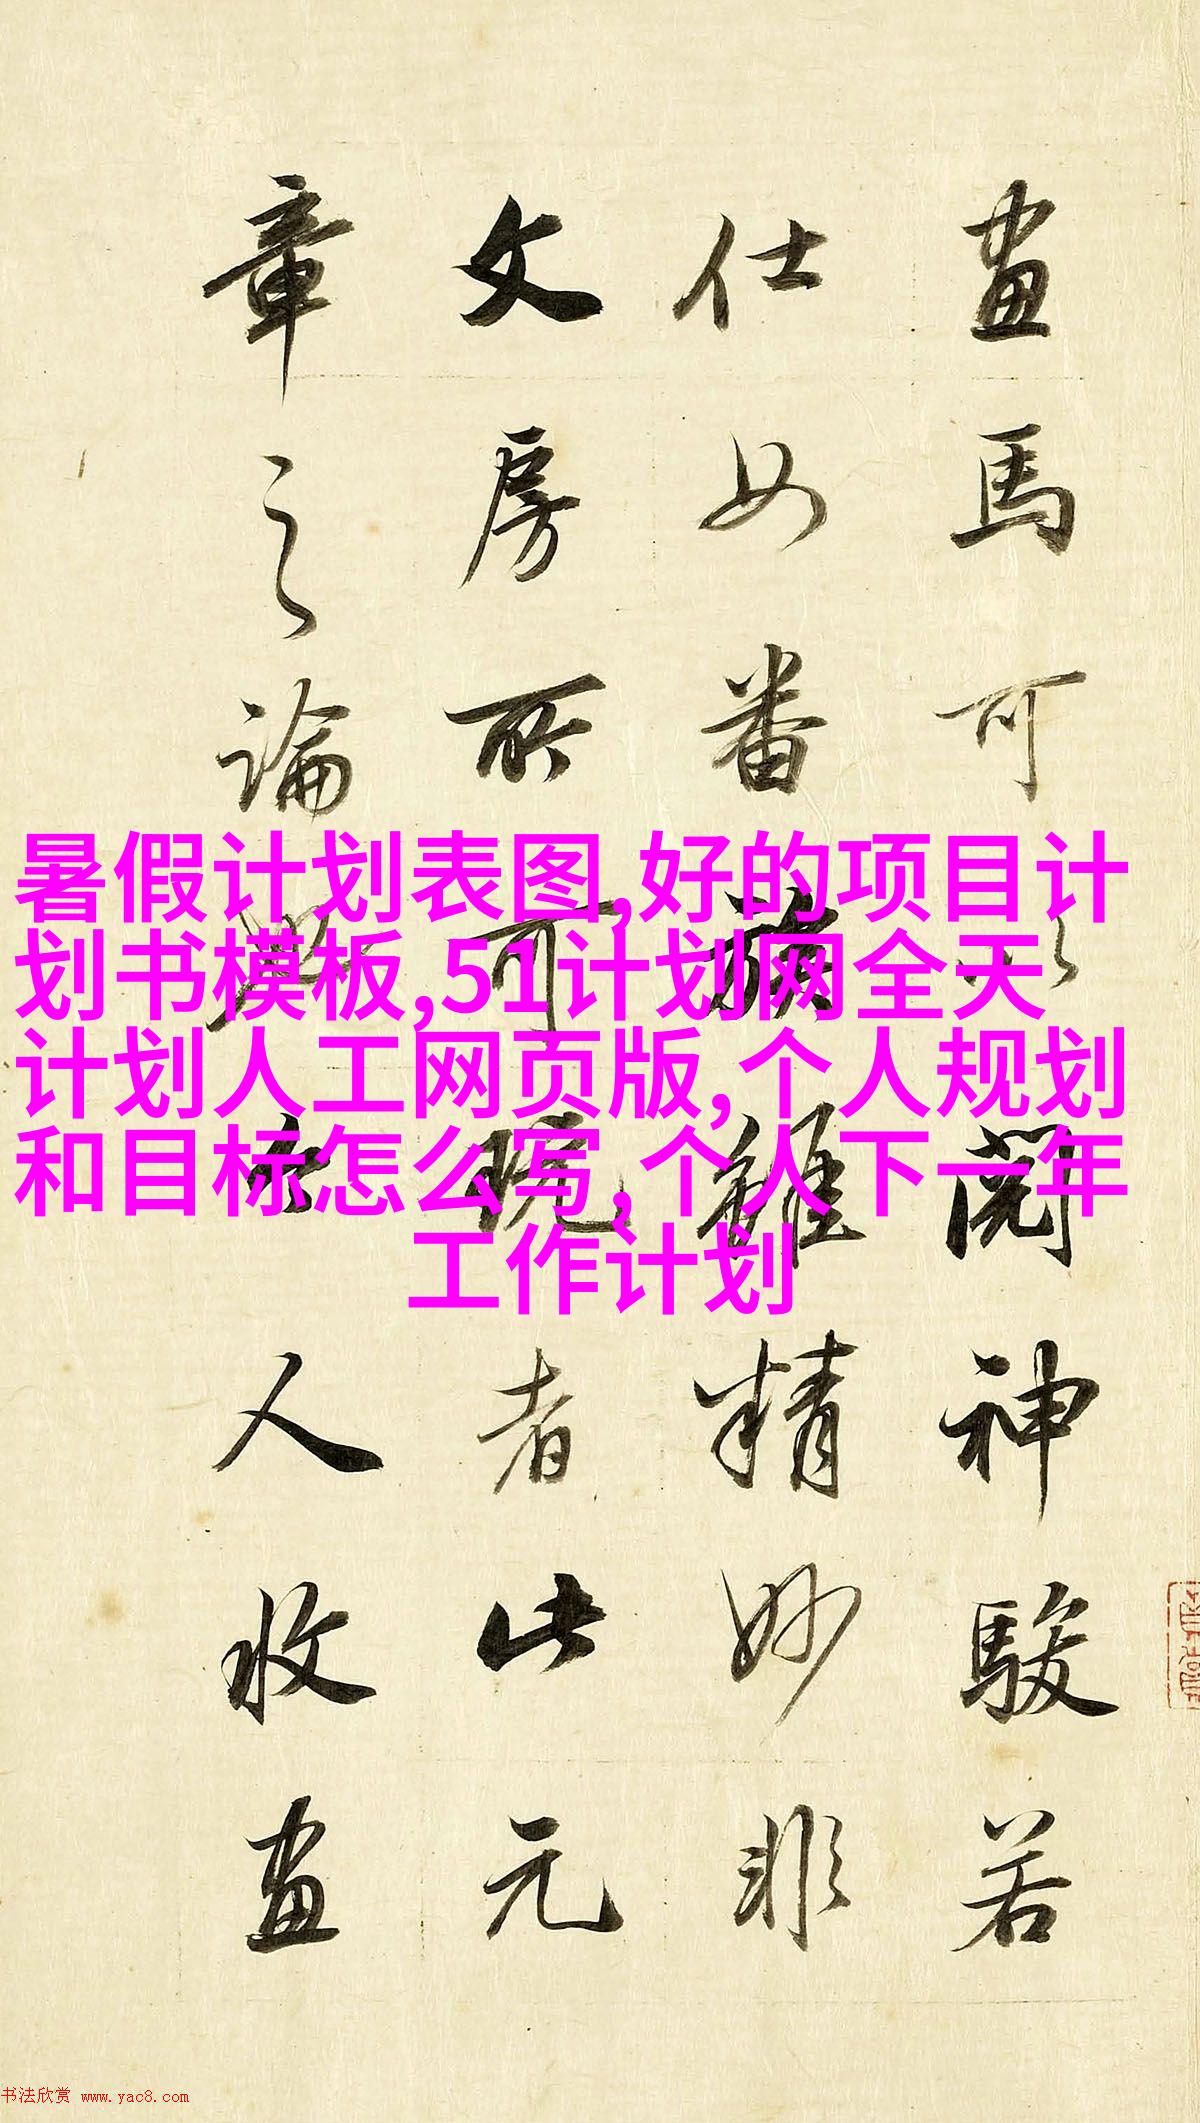 畫馬可以閱神駿若
仕女番族雖精妙非
文房所可玩者此元
章之論人收畫
暑假计划表图,好的项目计
划书模板,51计划网全天
计划人工网页版,个人规划
和目标怎么写,个人下一年
工作计划
书法欣赏 www.yac8.com